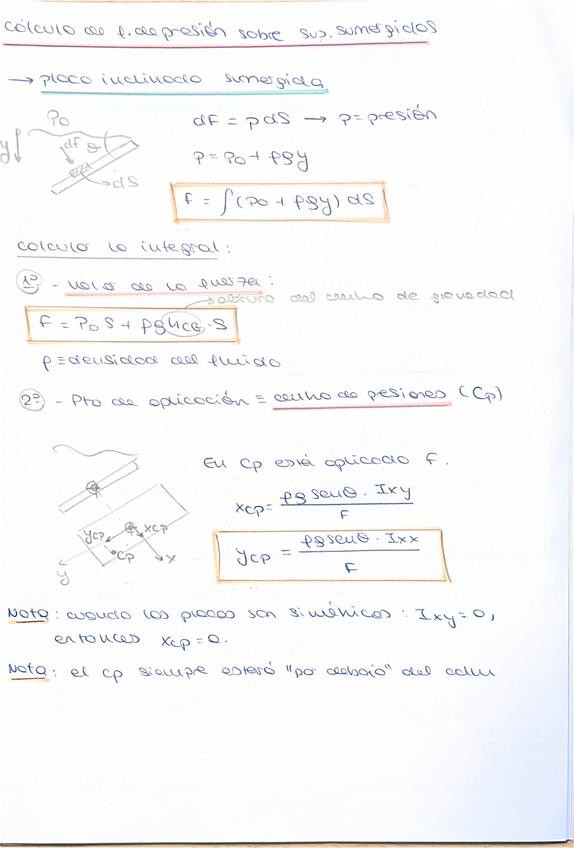 Cálculo de f. de presión sobre sup. sumergidas
→ placa inclinada sumergida
P0
dF = p dS → p = presión
y
df θ
p = p0 + ρgy
dS
F = ∫(p0 + ρgy) dS
Calculo la integral:
1º - Valor de la fuerza:
altura del centro de gravedad
F = P0 S + ρg hCG · S
ρ ≡ densidad del fluido
2º - Pto de aplicación ≡ centro de presiones (Cp)
En Cp está aplicado F.
xcp = ρg senθ · Ixy / F
ycp xcp
cp x
y
ycp = ρg senθ · Ixx / F
Nota: cuando las placas son simétricas: Ixy = 0,
entonces xcp = 0.
Nota: el cp siempre estará "por debajo" del cdm